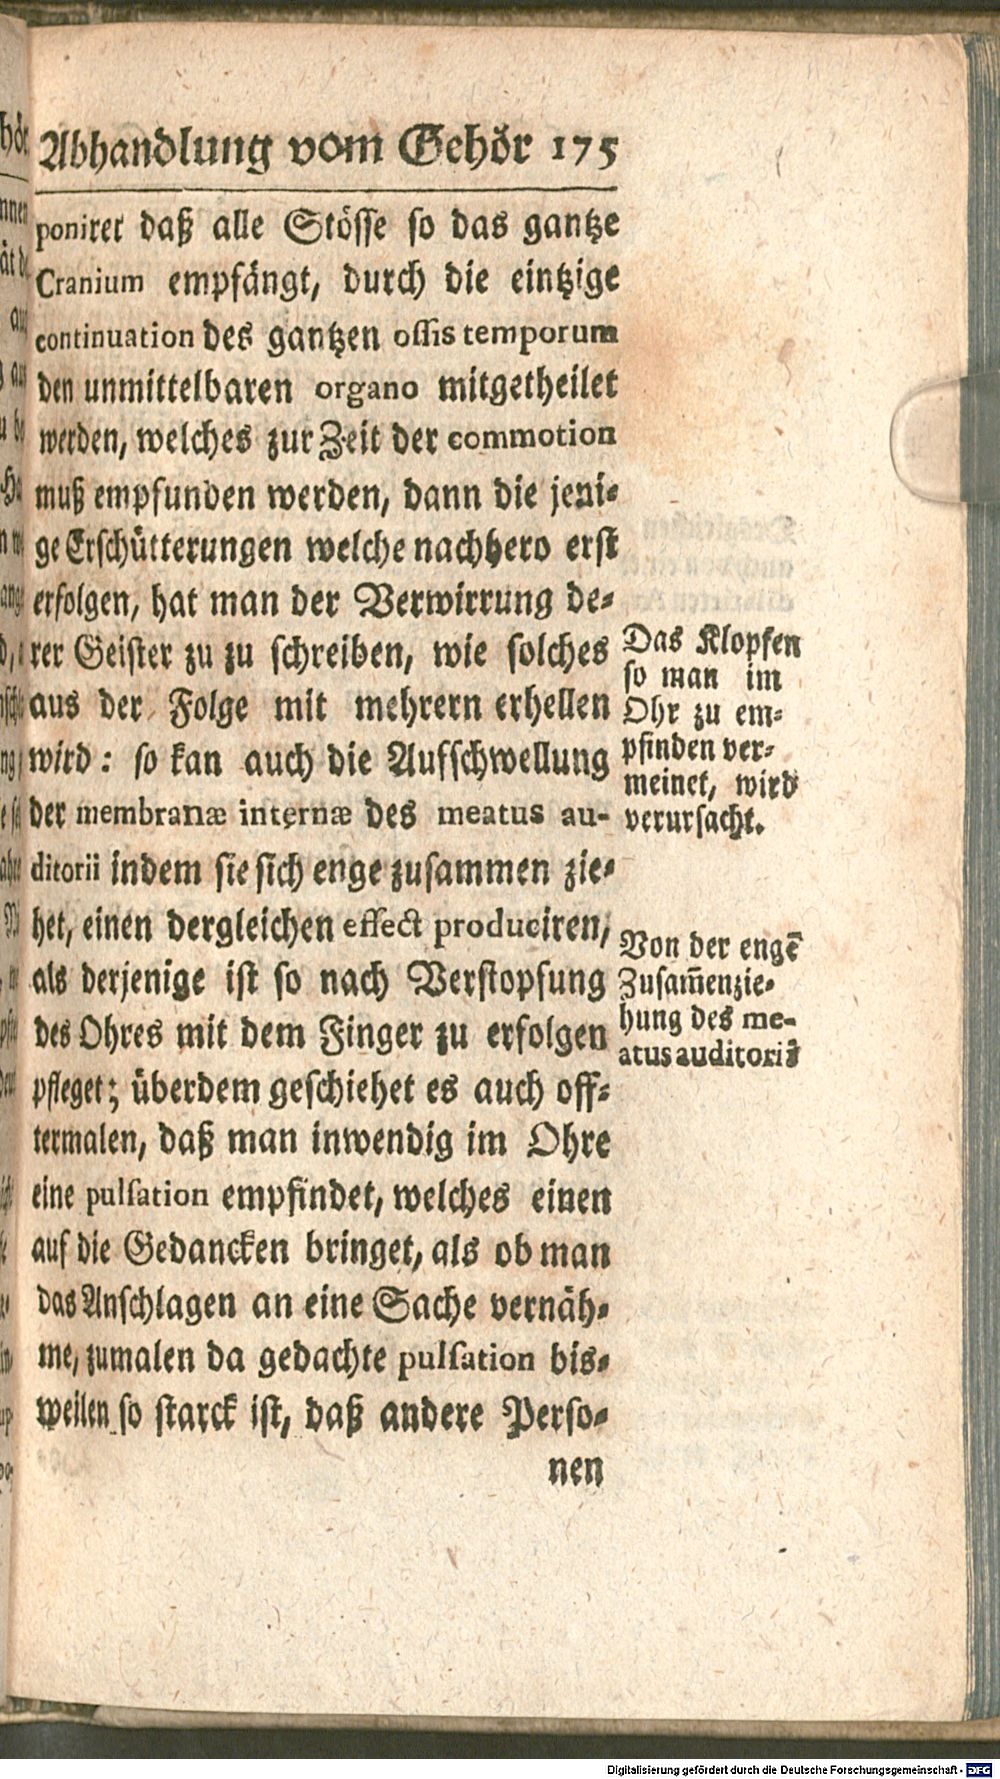 Abhandlung vom Gehör 175
poniret daß alle Stösse so das gantze
Cranium empfängt, durch die eintzige
continuation des gantzen ossis temporum
den unmittelbaren organo mitgetheilet
werden, welches zur Zeit der commotion
muß empfunden werden, dann die jeni-
ge Erschütterungen welche nachhero erst
erfolgen, hat man der Verwirrung de-
rer Geister zu zu schreiben, wie solches
aus der Folge mit mehrern erhellen
wird: so kan auch die Aufschwellung
der membranæ internæ des meatus au-
ditorii indem sie sich enge zusammen zie-
het, einen dergleichen effect produciren,
als derjenige ist so nach Verstopfung
des Ohres mit dem Finger zu erfolgen
pfleget; überdem geschiehet es auch öff-
termalen, daß man inwendig im Ohre
eine pulsation empfindet, welches einen
auf die Gedancken bringet, als ob man
das Anschlagen an eine Sache vernäh-
me, zumalen da gedachte pulsation bis-
weilen so starck ist, daß andere Perso-
nen
Das Klopfen
so man im
Ohr zu em-
pfinden ver-
meinet, wird
verursacht.
Von der engē
Zusam̄enzie-
hung des me-
atus auditorii
Digitalisierung gefördert durch die Deutsche Forschungsgemeinschaft - DFG